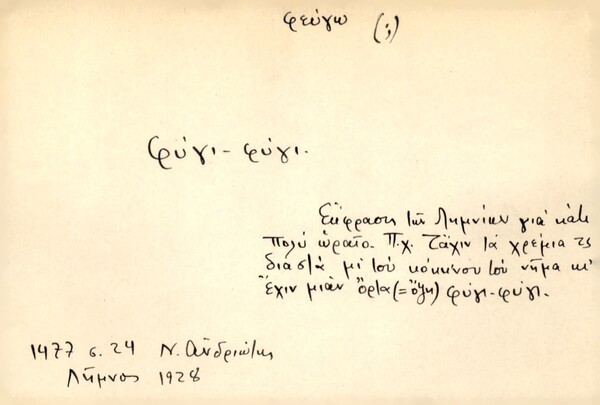 φεύγω (;)
Φύγι - φύγι.
Ἔκφραση τῶν Λημνίων γιά κάτι
πολύ ὡραῖο. Π.χ. Τἄχιν τά χρέμια τς
διασ'ά μί τοὐ κόκκινου τοὐ νῆμα κι'
ἔχιν μιάν ὄρ'α (= ὄψη) φύγι-φύγι.
1477 σ. 24 Ν. Ἀνδριώτης
Λῆμνος 1928